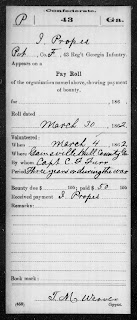 Confederate.
P 43 Ga.
J. Propes
Pvt, Co. F, 43 Reg't Georgia Infantry
Appears on a
Pay Roll
of the organization named above, showing payment
of bounty.
Roll dated
March 10, 1862
Volunteered:
When March 4, 1862
Where Gainesville Hall County Ga
By whom Capt C. F.
Period Three years or during the war
Bounty due $ 100; paid $ 50 100
Received payment J. Propes
Remarks:
J. M. Weaver
Copyist.